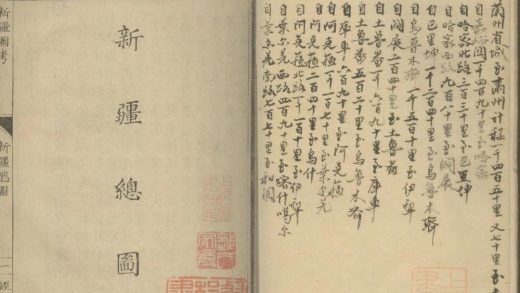 蘭州省城至肅州計程一千四百五十里又七十里至
自嘉峪關一千四百九十里至哈密
自哈密北路三百三十里至巴里坤
自哈密西路九百八十里至闢展
自巴里坤一千三百四十里至烏魯木齊
自烏魯木齊一千五百十里至伊犁
自闢展二百四十里至土魯番
自土魯番一千六百九十里至庫車
自土魯番五百二十里至烏魯木齊
自庫車六百九十里至阿克蘇
自阿克蘇一千一百七十里至葉尔羌
自阿克蘇二百四十里至烏什
自阿克蘇北路一千一百十里至伊犁
自葉尔羌西路四百九十里至喀什噶尔
自葉尔羌南路七百七十里至和闐
新疆總圖
新疆圖考
新疆總圖
一